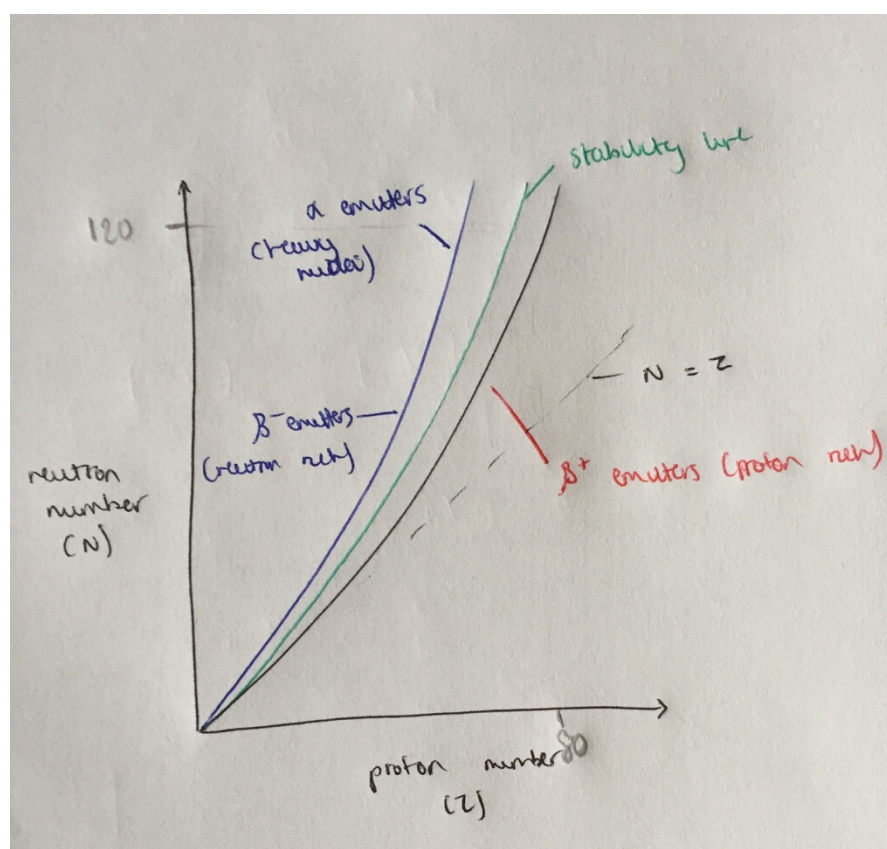 stability line
α emitters
(heavy
nuclei)
120
N = Z
β⁻ emitters
(neutron rich)
β⁺ emitters (proton rich)
neutron
number
(N)
80
proton number
(Z)